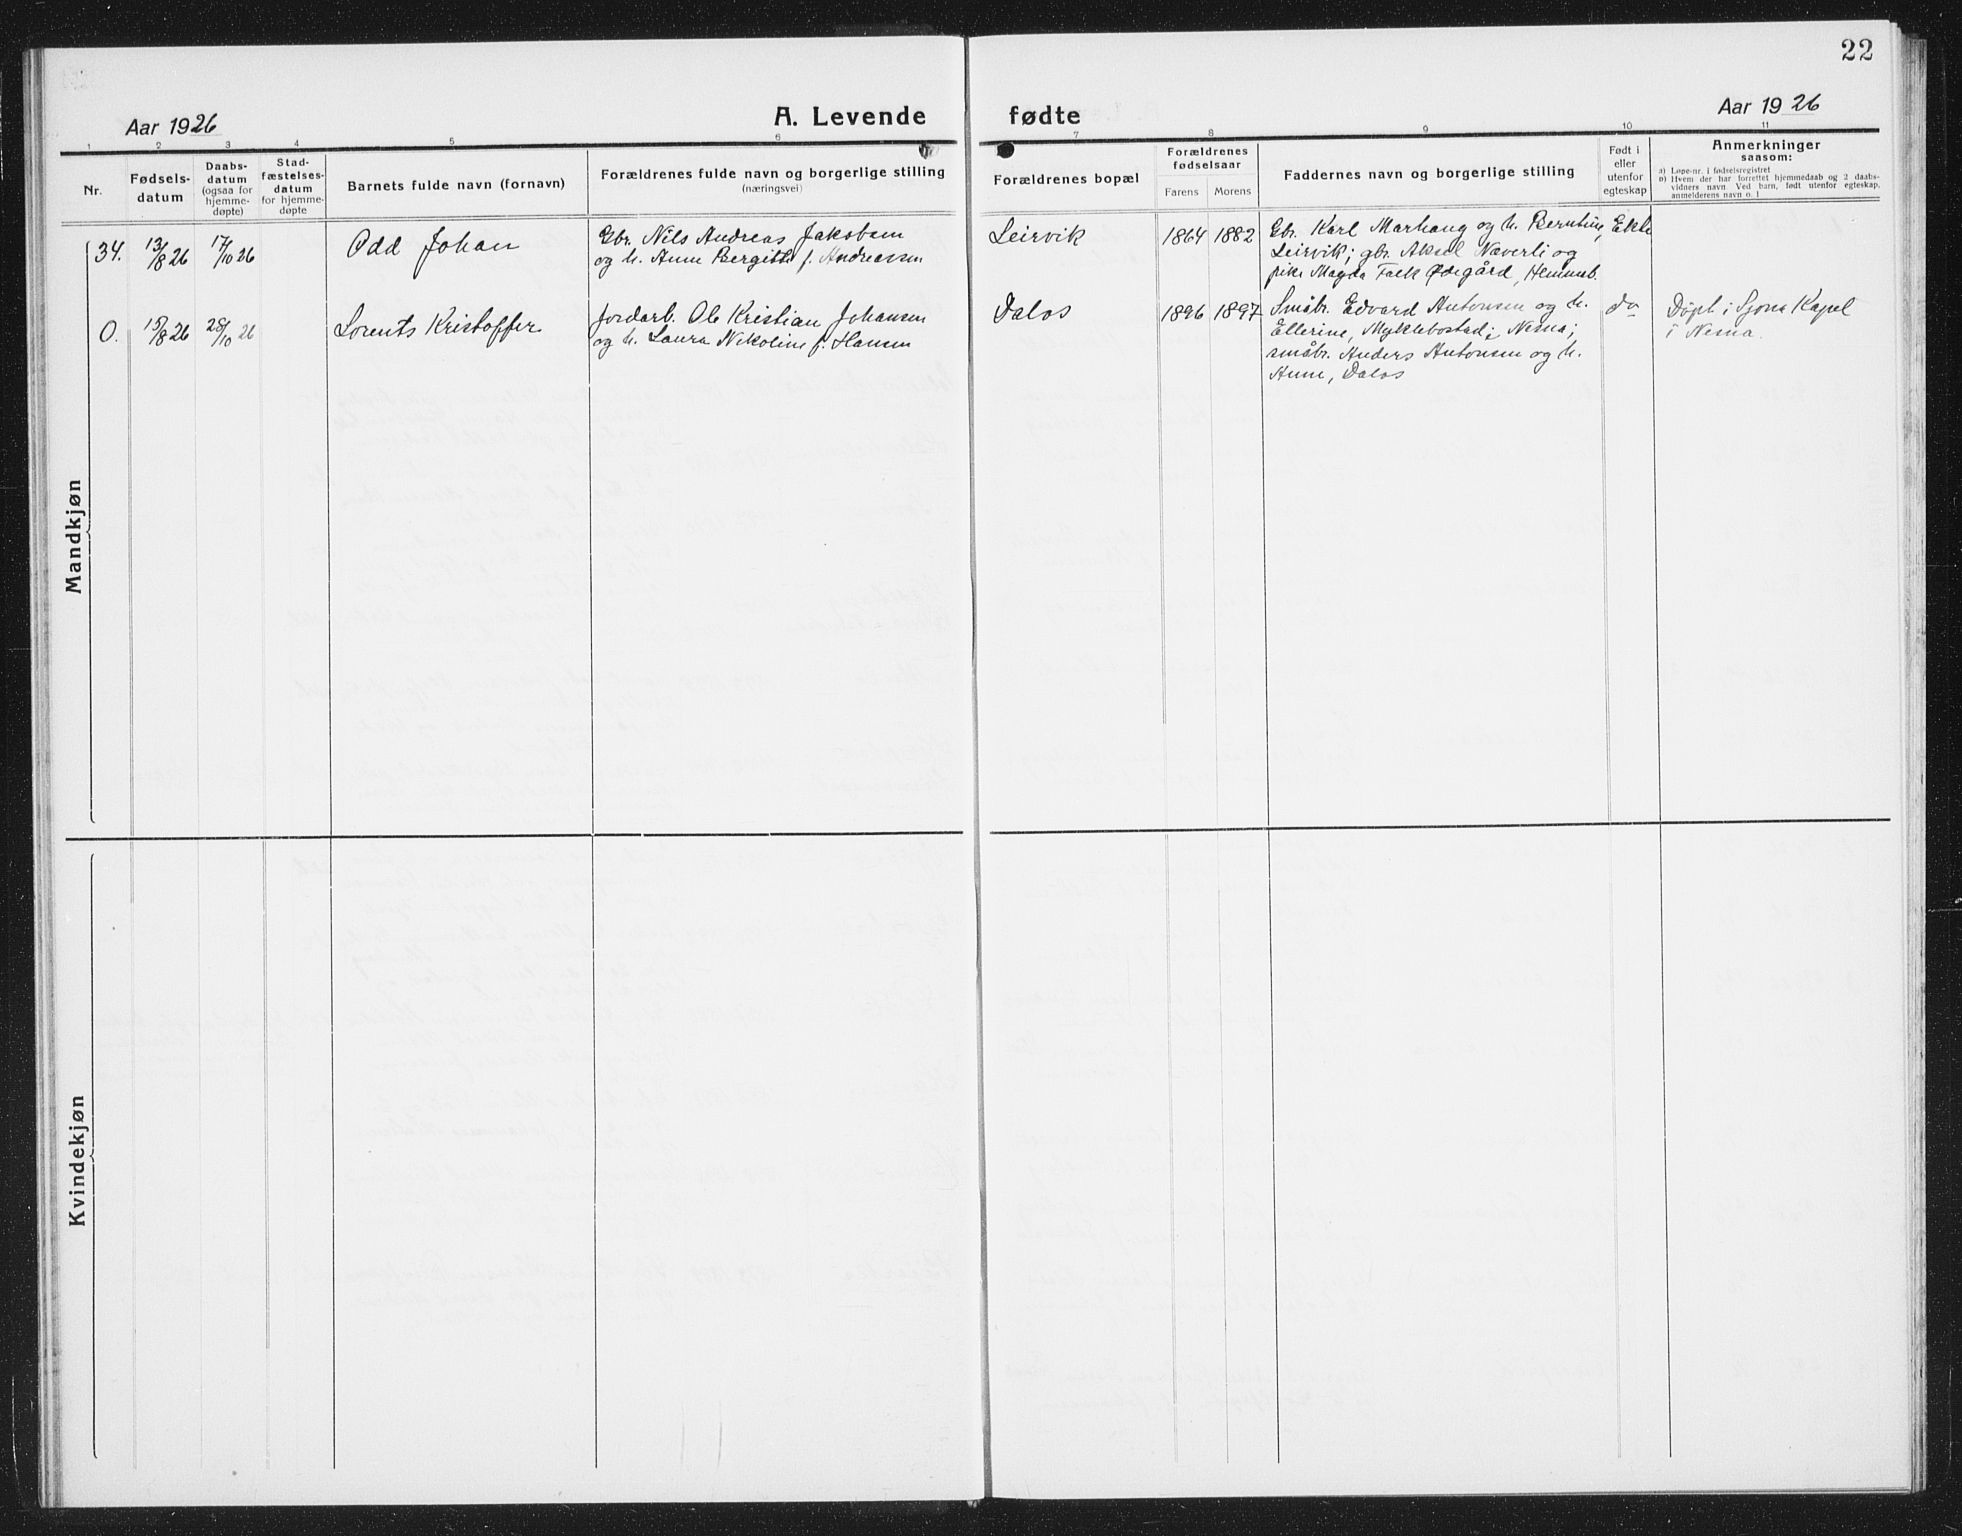 22
Aar 1926
A. Levende
fødte
Aar 1926
1 2 3 4 5 6 7 8 9 10 11
Nr.
Fødsels-
datum
Daabs-
datum
(ogsaa for
hjemme-
døpte)
Stad-
fæstelses-
datum
for hjemme-
døpte
Barnets fulde navn (fornavn)
Forældrenes fulde navn og borgerlige stilling
(næringsvei)
Forældrenes bopæl
Forældrenes
fødselsaar
Farens Morens
Faddernes navn og borgerlige stilling
Født i
eller
utenfor
egteskap
Anmerkninger
saasom:
a) Løpe-nr. i fødselsregistret
b) Hvem der har forrettet hjemmedaab og 2 daabs-
vidners navn Ved barn, født utenfor egteskap,
anmelderens navn o. l
Mandkjøn
34.
13/8 26
17/10 26
Odd Johan
Gbr. Nils Andreas Jakobsen
og h. Anne Bergitte f. Andreassen
Leirvik
1864 1882
Gbr. Karl Marhaug og h. Berntine,
Leirvik; gbr. Aksel Næverli og
pike Magda Falk Ødegård, Hemnesb.
Ekte
0.
15/8 26
25/10 26
Lorents Kristoffer
Jordarb. Ole Kristian Johansen
og h. Laura Nikoline f. Hansen
Dalos
1896 1897
Småbr. Edvard Antonsen og h.
Ellerine, Myklebostad, Nesna;
småbr. Anders Antonsen og h.
Anne, Dalos
do
Døpt i Sjona Kapel
i Nesna.
Kvindekjøn